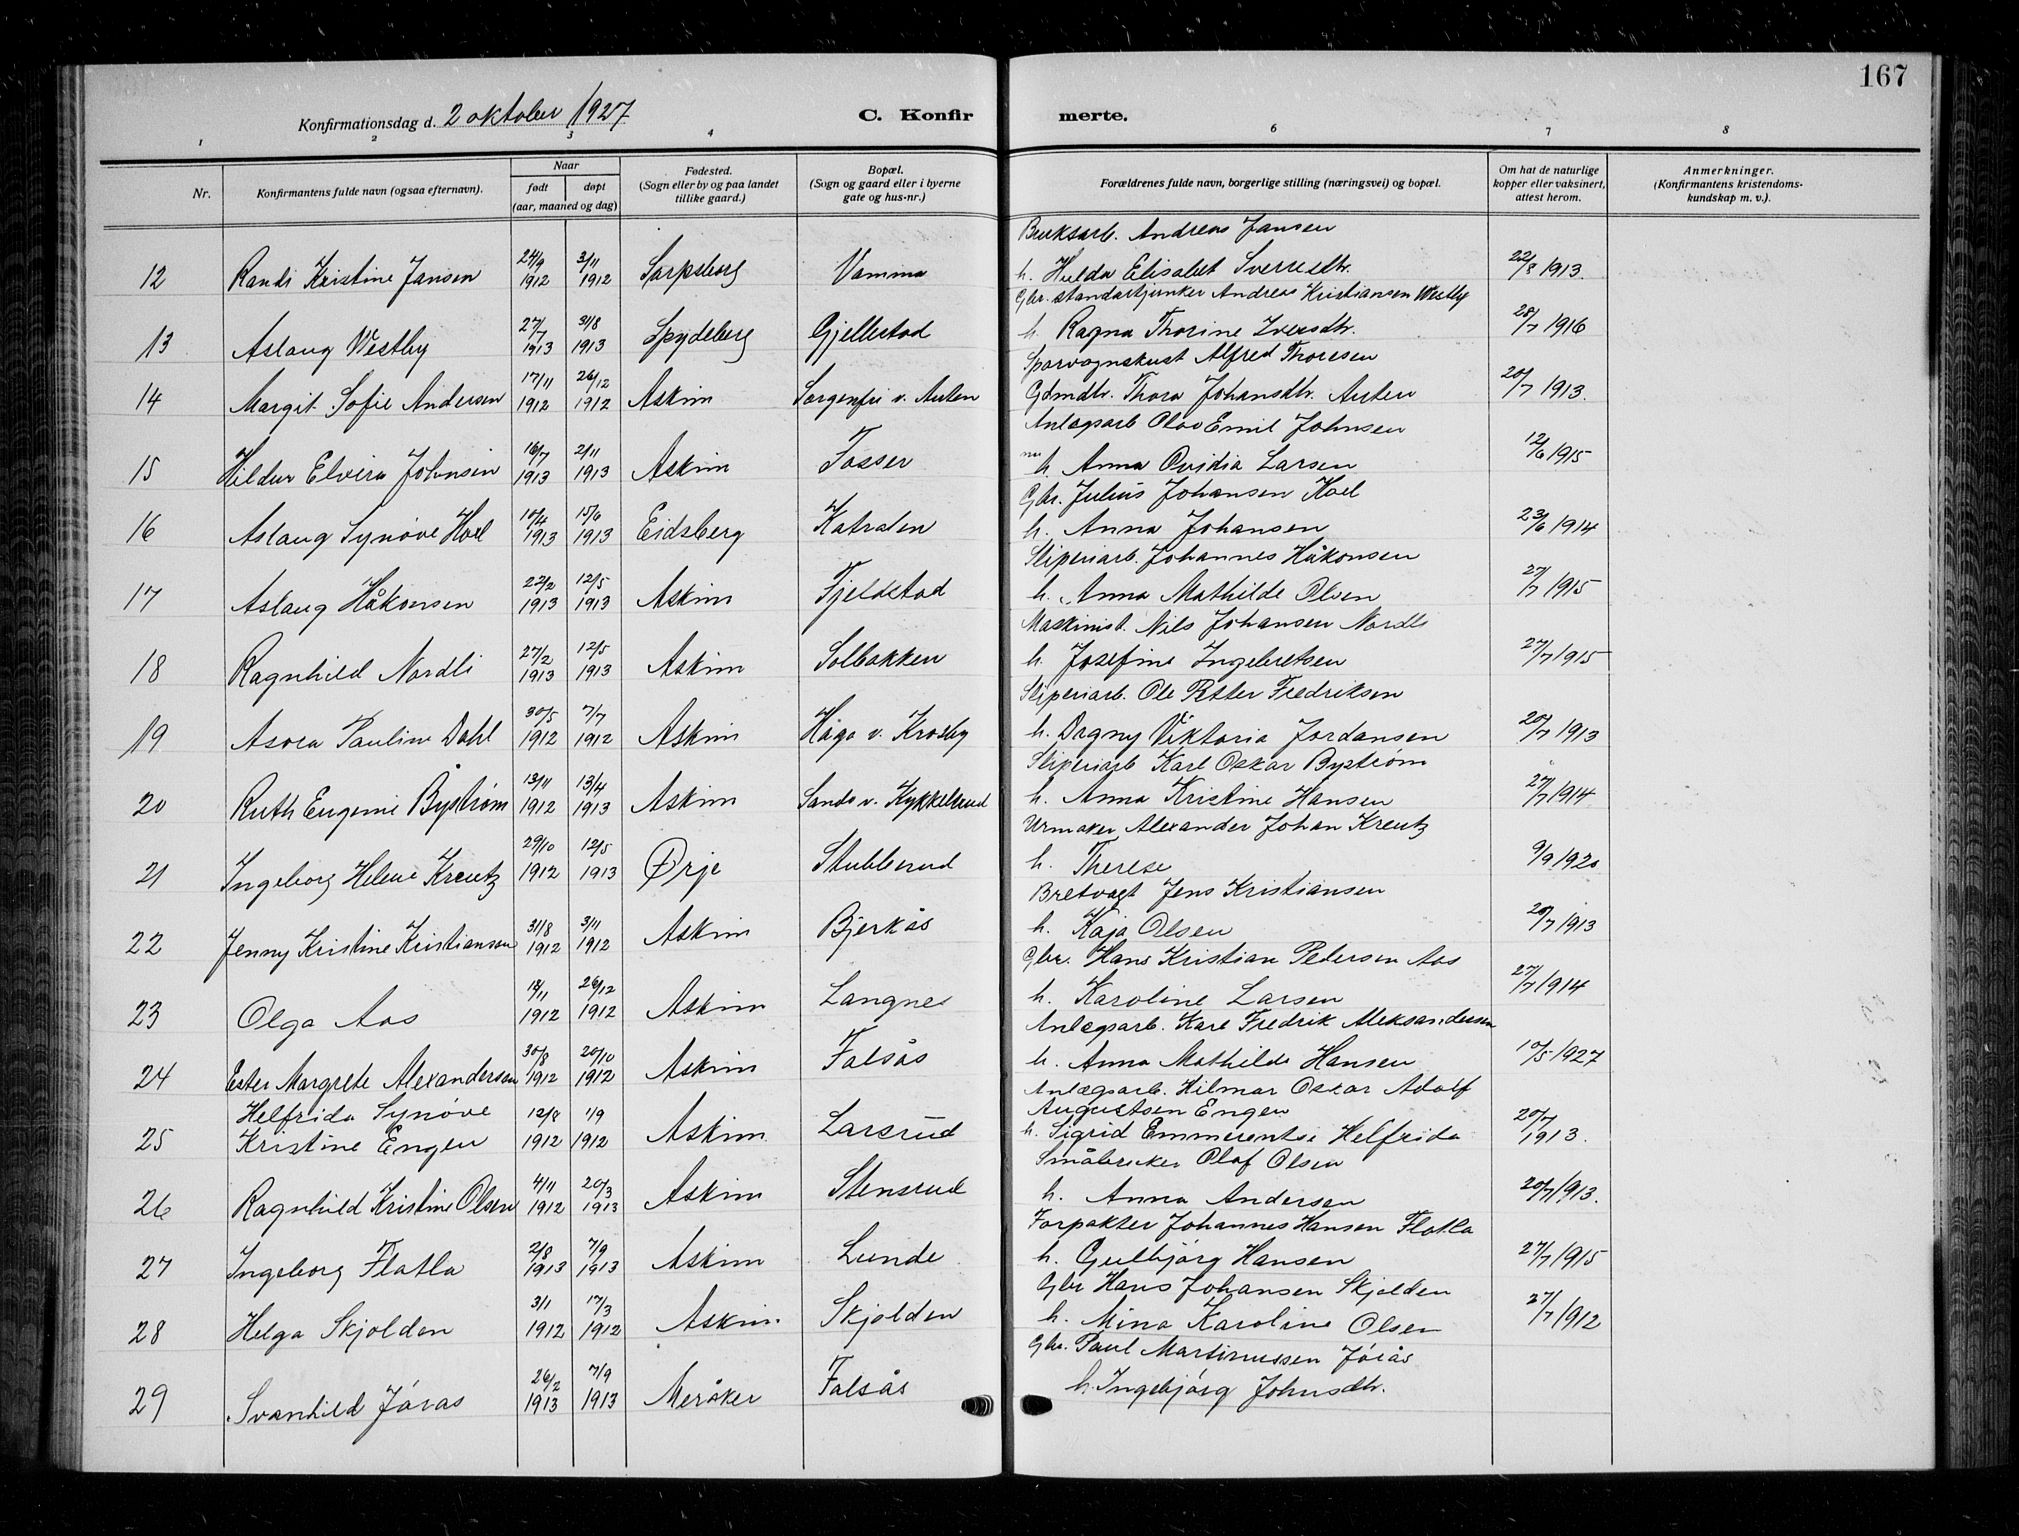 167
Konfirmationsdag d. 2 oktober 1927
C. Konfirmerte.
1 2 3 4 6 7 8
Nr.
Konfirmantens fulde navn (ogsaa efternavn).
Naar
født døpt
(aar, maaned og dag)
Fødested.
(Sogn eller by og paa landet
tillike gaard.)
Bopæl.
(Sogn og gaard eller i byerne
gate og hus-nr.)
Forældrenes fulde navn, borgerlige stilling (næringsvei) og bopæl.
Om hat de naturlige
kopper eller vaksinert,
attest herom.
Anmerkninger.
(Konfirmantens kristendoms-
kundskap m. v.).
Bruksarb. Andreas Jansen
12 Randi Kristine Jansen 24/9 1912 3/11 1912 Sarpsborg Vamma h. Hilda Elisabet Sverresdtr. 22/8 1913.
Gbr. standartjunker Andreas Kristiansen Westby
13 Aslaug Westby 27/7 1913 31/8 1913 Spydeberg Gjellestad h. Ragna Thorine Iversdtr. 28/7 1916
Sporvognskusk Alfred Thoresen
14 Margit Sofie Andersen 17/11 1912 26/12 1912 Askim Sorgenfri v. Auten Gdmdtr. Thora Johansdtr. Auten 20/7 1913.
Anlægsarb Olav Emil Johnsen
15 Hildur Elvira Johnsen 16/7 1913 2/11 1913 Askim Fosser nu h. Anna Ovidia Larsen 12/6 1915
Gbr. Julius Johansen Hoel
16 Aslaug Synøve Hoel 10/4 1913 15/6 1913 Eidsberg Katralen h. Anna Johansen 23/6 1914
Sliperiarb. Johannes Håkonsen
17 Aslaug Håkonsen 22/2 1913 12/5 1913 Askim Fjeldstad h. Anna Mathilde Olsen 27/7 1915
Maskinist. Nils Johansen Nordli
18 Ragnhild Nordli 27/2 1913 12/5 1913 Askim Solbakken h. Josefine Ingebretsen 27/7 1915
Sliperiarb. Ole Petter Fredriksen
19 Asora Pauline Dahl 30/5 1912 7/7 1912 Askim Håga v. Krosby h. Dagny Viktoria Jordansen 20/7 1913
Sliperiarb Karl Oskar Byström
20 Ruth Eugenie Byström 13/11 1912 13/4 1913 Askim Sando v. Kykkelsrud h. Anna Kristine Hansen 27/7 1914
Urmaker Alexander Johan Kreutz
21 Ingeborg Helene Kreutz 29/10 1912 12/5 1913 Ørje Stubberud h. Therese 9/9 1920
Bretvagt Jens Kristiansen
22 Jenny Kristine Kristiansen 31/8 1912 3/11 1912 Askim Bjerkås h. Kaja Olsen 20/7 1913
Gbr. Hans Kristian Pedersen Aas
23 Olga Aas 18/11 1912 26/12 1912 Askim Langnes h. Karoline Larsen 27/7 1914
Anlægsarb. Karl Fredrik Aleksandersen
24 Ester Margrete Alexandersen 30/8 1912 20/10 1912 Askim Falsås h. Anna Mathilde Hansen 10/5 1927
Anlægsarb. Hilmar Oskar Adolf
Helfrida Synøve Augustsen Engen
25 Kristine Engen 12/8 1912 1/9 1912 Askim Larsrud h. Sigrid Emmerentse Helfrida 20/7 1913.
Småbruker Olaf Olsen
26 Ragnhild Kristine Olsen 4/11 1912 20/3 1913 Askim Stensrud h. Anna Andersen 20/7 1913.
Forpakter Johannes Hansen Flatla
27 Ingeborg Flatla 2/8 1913 7/9 1913 Askim Lunde h. Gulbjørg Hansen 27/7 1915
Gbr Hans Johansen Skjolden
28 Helga Skjolden 3/1 1912 17/3 1912 Askim. Skjolden h. Mina Karoline Olsen 27/7 1912
Gbr. Paul Martinussen Jórås
29 Svanhild Jóras 26/2 1913 7/9 1913 Meråker Falsås h. Ingebjórg Johnsdtr.